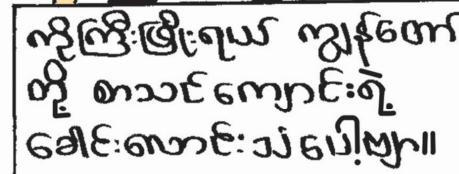 ကိုကြီးဖြိုးရယ် ကျွန်တော်
တို့ စာသင်ကျောင်းရဲ့
ခေါင်းလောင်းသံပေါ့ဗျာ။